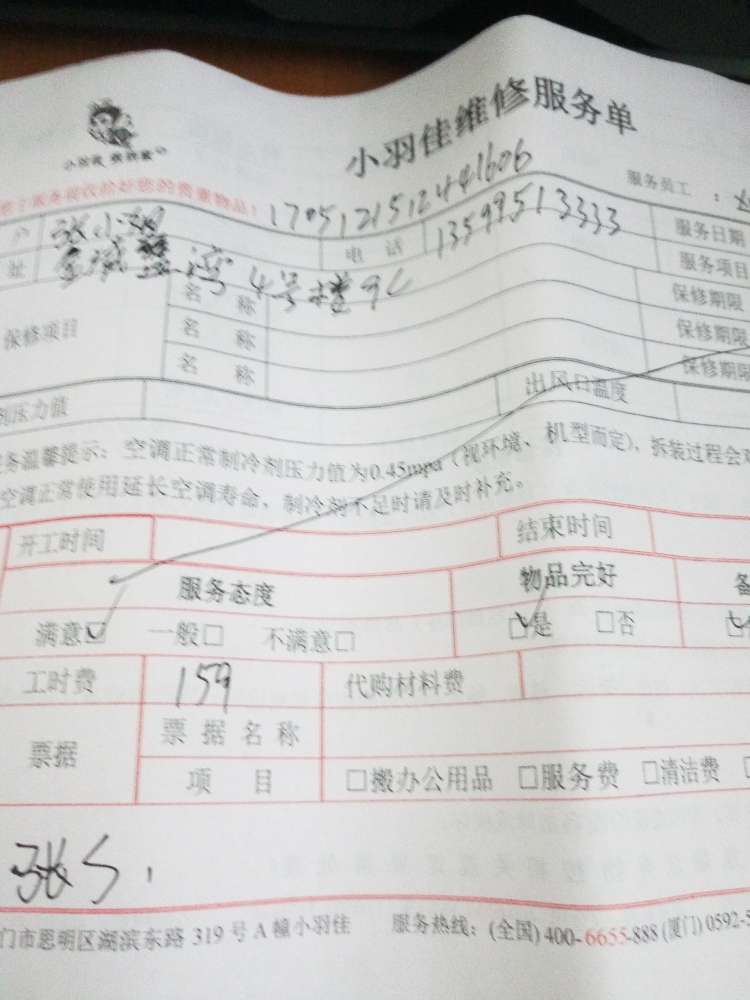 小羽佳维修服务单
服务员工：
170512151244 1606
张小姐 电话 13599513333 服务日期
址 4号楼9C 服务项目
保修项目 名称 保修期限
名称 保修期限
名称 保修期限
剂压力值 出风口温度
务温馨提示：空调正常制冷剂压力值为0.45mpa（视环境、机型而定），拆装过程会对
空调正常使用延长空调寿命，制冷剂不足时请及时补充。
开工时间 结束时间
服务态度 物品完好 备
满意☑ 一般□ 不满意□ ☑是 □否
工时费 159 代购材料费
票据 票据名称
项目 □搬办公用品 □服务费 □清洁费
张
门市思明区湖滨东路 319 号 A 幢小羽佳 服务热线：(全国) 400-6655-888 (厦门) 0592-5